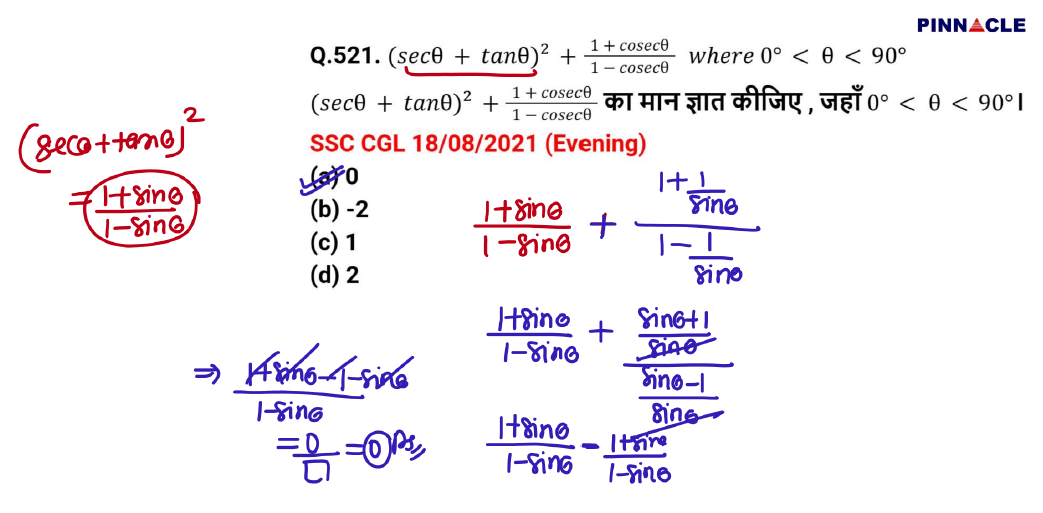 PINNACLE
Q.521. (secθ + tanθ)² + (1 + cosecθ)/(1 − cosecθ) where 0° < θ < 90°
(secθ + tanθ)² + (1 + cosecθ)/(1 − cosecθ) का मान ज्ञात कीजिए , जहाँ 0° < θ < 90°।
SSC CGL 18/08/2021 (Evening)
(a) 0
(b) -2
(c) 1
(d) 2
(secθ+tanθ)²
= (1+sinθ)/(1-sinθ)
(1+sinθ)/(1-sinθ) + (1+1/sinθ)/(1-1/sinθ)
(1+sinθ)/(1-sinθ) + ((sinθ+1)/sinθ)/((sinθ-1)/sinθ)
(1+sinθ)/(1-sinθ) - (1+sinθ)/(1-sinθ)
⇒ (1+sinθ-1-sinθ)/(1-sinθ)
= 0/□ = 0 Ans